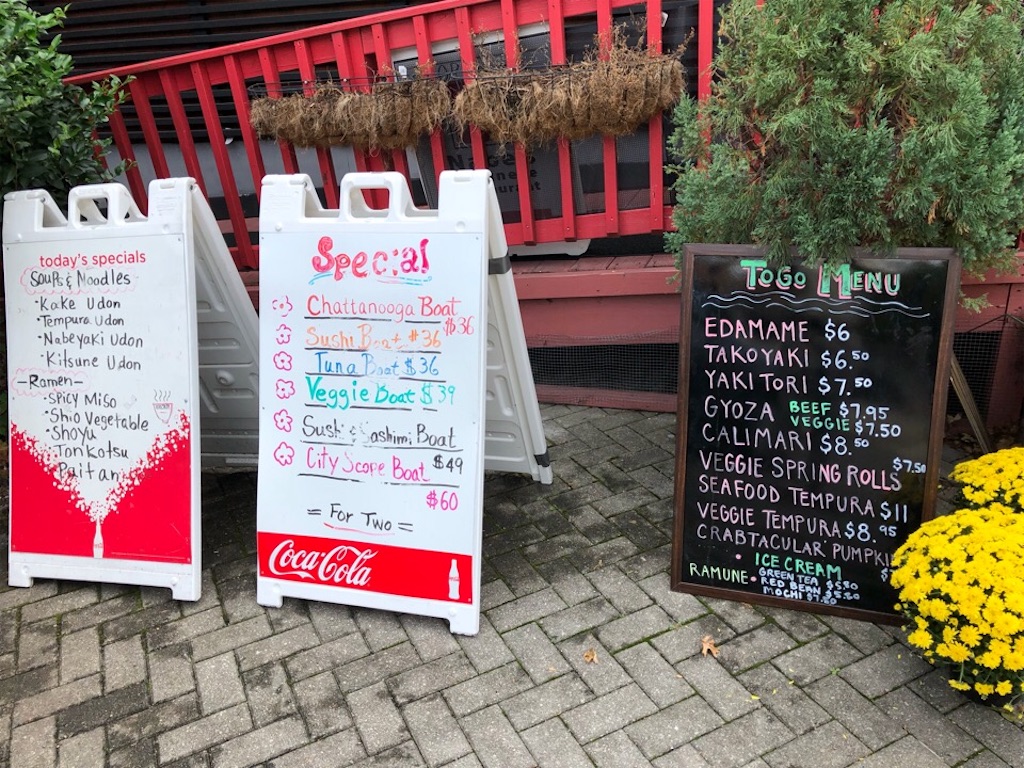 today's specials
Soups & Noodles
· Kake Udon
· Tempura Udon
· Nabeyaki Udon
· Kitsune Udon
- Ramen -
· Spicy Miso
· Shio Vegetable
· Shoyu
· Tonkotsu
Paitan
Special
Chattanooga Boat
$36
Sushi Boat $36
Tuna Boat $36
Veggie Boat $39
Sushi & Sashimi Boat
$49
City Scape Boat
$60
= For Two =
Coca-Cola
ToGo MENU
EDAMAME $6
TAKOYAKI $6.50
YAKITORI $7.50
GYOZA BEEF $7.95
VEGGIE $7.50
CALIMARI $8.50
VEGGIE SPRING ROLLS $7.50
SEAFOOD TEMPURA $11
VEGGIE TEMPURA $8.95
CRABTACULAR PUMPKI
$
· ICE CREAM
RAMUNE · GREEN TEA
RED BEAN
MOCHI